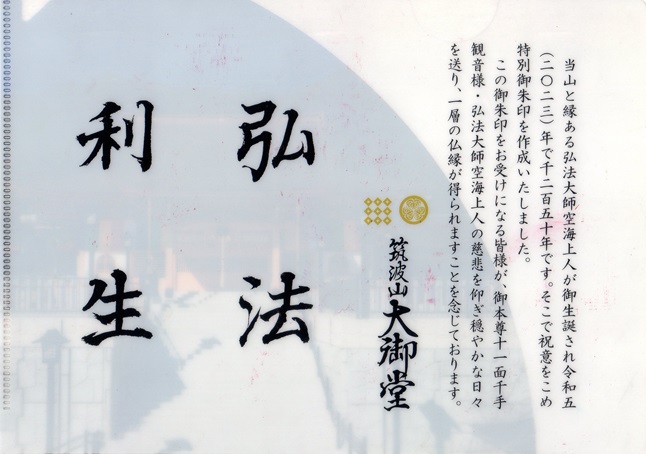 当山と縁ある弘法大師空海上人が御生誕され令和五
(二〇二三)年で千二百五十年です。そこで祝意をこめ
特別御朱印を作成いたしました。
この御朱印をお受けになる皆様が、御本尊十一面千手
観音様・弘法大師空海上人の慈悲を仰ぎ穏やかな日々
を送り、一層の仏縁が得られますことを念じております。
筑波山大御堂
弘法
利生